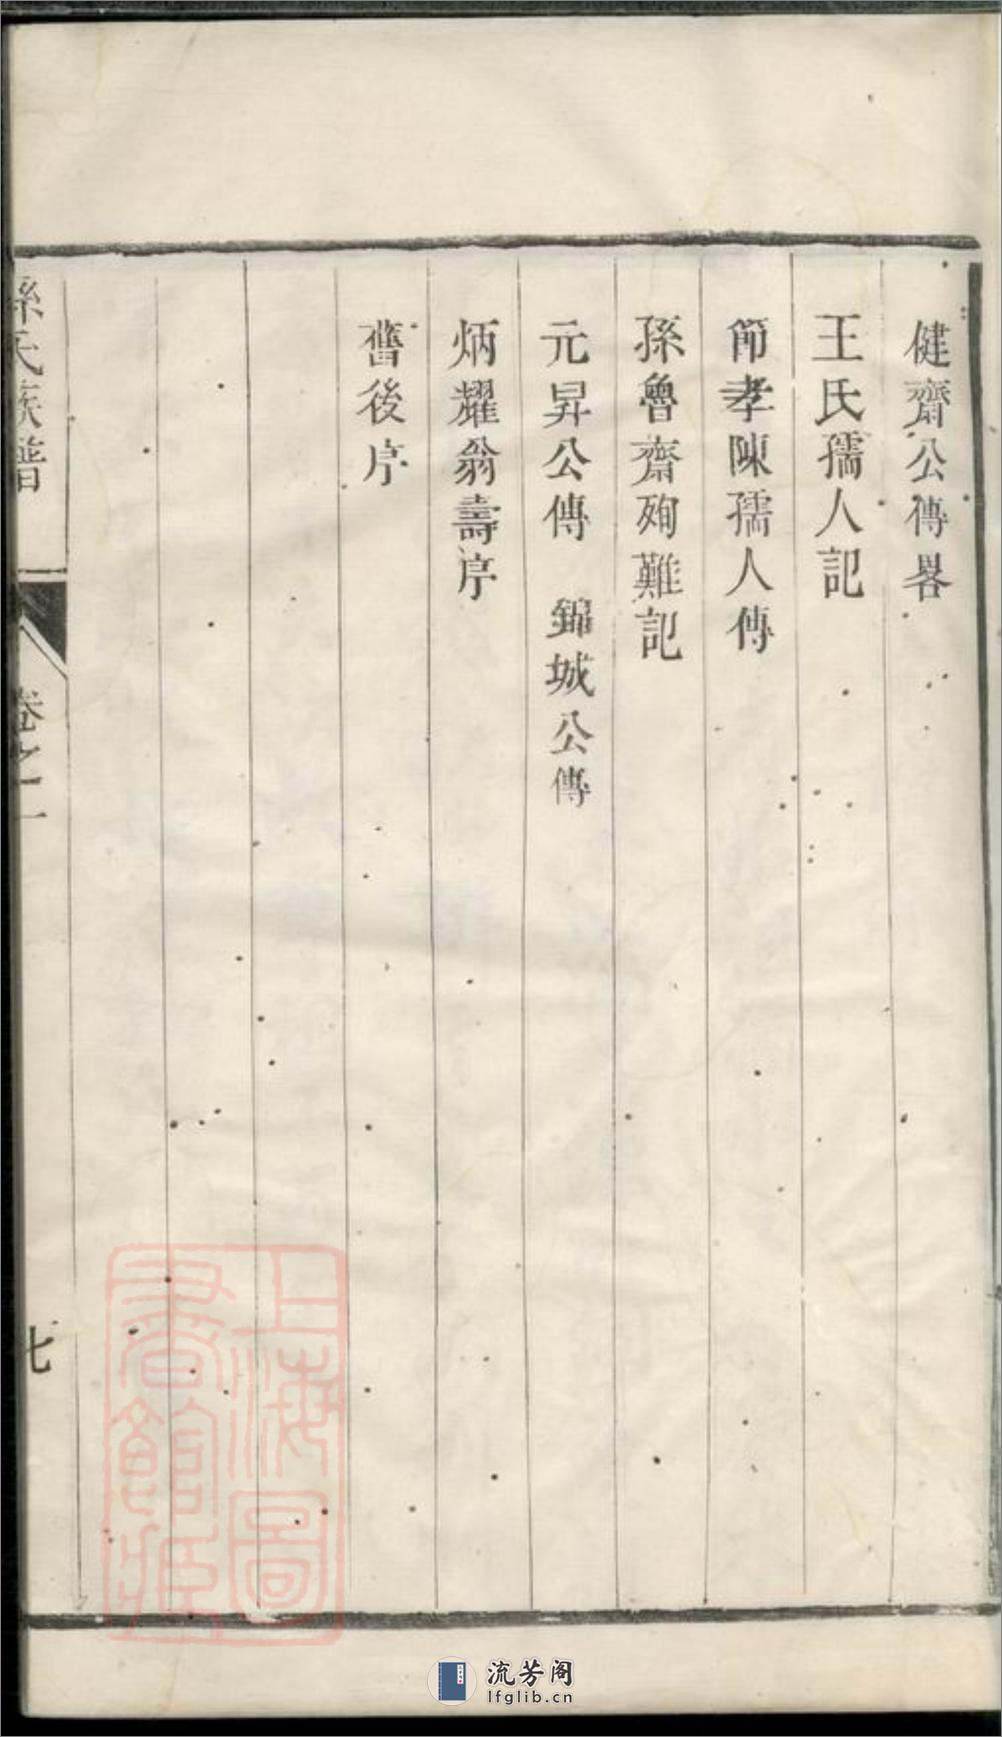 健齋公傳畧
王氏孺人記
節孝陳孺人傳
孫魯齋殉難記
元昇公傳　錦城公傳
炳耀翁壽序
舊後序
孫氏族譜
卷之一
七
上海圖
書館藏
流芳阁
lfglib.cn